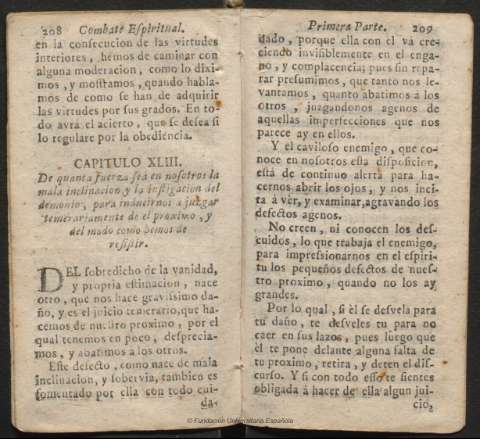 208 Combate Espiritual.
en la consecucion de las virtudes
interiores, hemos de caminar con
alguna moderacion, como lo dixi-
mos, y mostramos, quando habla-
mos de como se han de adquirir
las virtudes por sus grados. En to-
do avrá el acierto, que se desea si
lo regulare por la obediencia.
CAPITULO XLIII.
De quanta fuerza sea en nosotros la
mala inclinacion y la instigacion del
demonio, para induzirnos a juzgar
temerariamente de el proximo, y
del modo como hemos de
resistir.
DEL sobredicho de la vanidad,
y propria estimacion, nace
otro, que nos hace gravissimo da-
ño, y es el juicio temerario, que ha-
cemos de nuestro proximo, por el
qual tenemos en poco, desprecia-
mos, y abatimos a los otros.
Este defecto, como nace de mala
inclinacion, y sobervia, tambien es
fomentado por ella con todo cui-
da-
Primera Parte. 209
dado, porque ella con el vá cre-
ciendo invisiblemente en el enga-
ño, y complacencia; pues sin repa-
rar presumimos, que tanto nos le-
vantamos, quanto abatimos a los
otros, juzgandonos agenos de
aquellas imperfecciones que nos
parece ay en ellos.
Y el caviloso enemigo, que co-
noce en nosotros esta disposicion,
está de continuo alerta para ha-
cernos abrir los ojos, y nos inci-
ta á vér, y examinar, agravando los
defectos agenos.
No creen, ni conocen los des-
cuidos, lo que trabaja el enemigo,
para impressionarnos en el espiri-
tu los pequeños defectos de nues-
tro proximo, quando no los ay
grandes.
Por lo qual, si él se desvela para
tu daño, te desveles tu para no
caer en sus lazos, pues luego que
el te pone delante alguna falta de
tu proximo, retira, y deten el dis-
curso. Y si con todo esso te sientes
obligada á hacer de ella algun jui-
cio,
© Fundación Universitaria Española